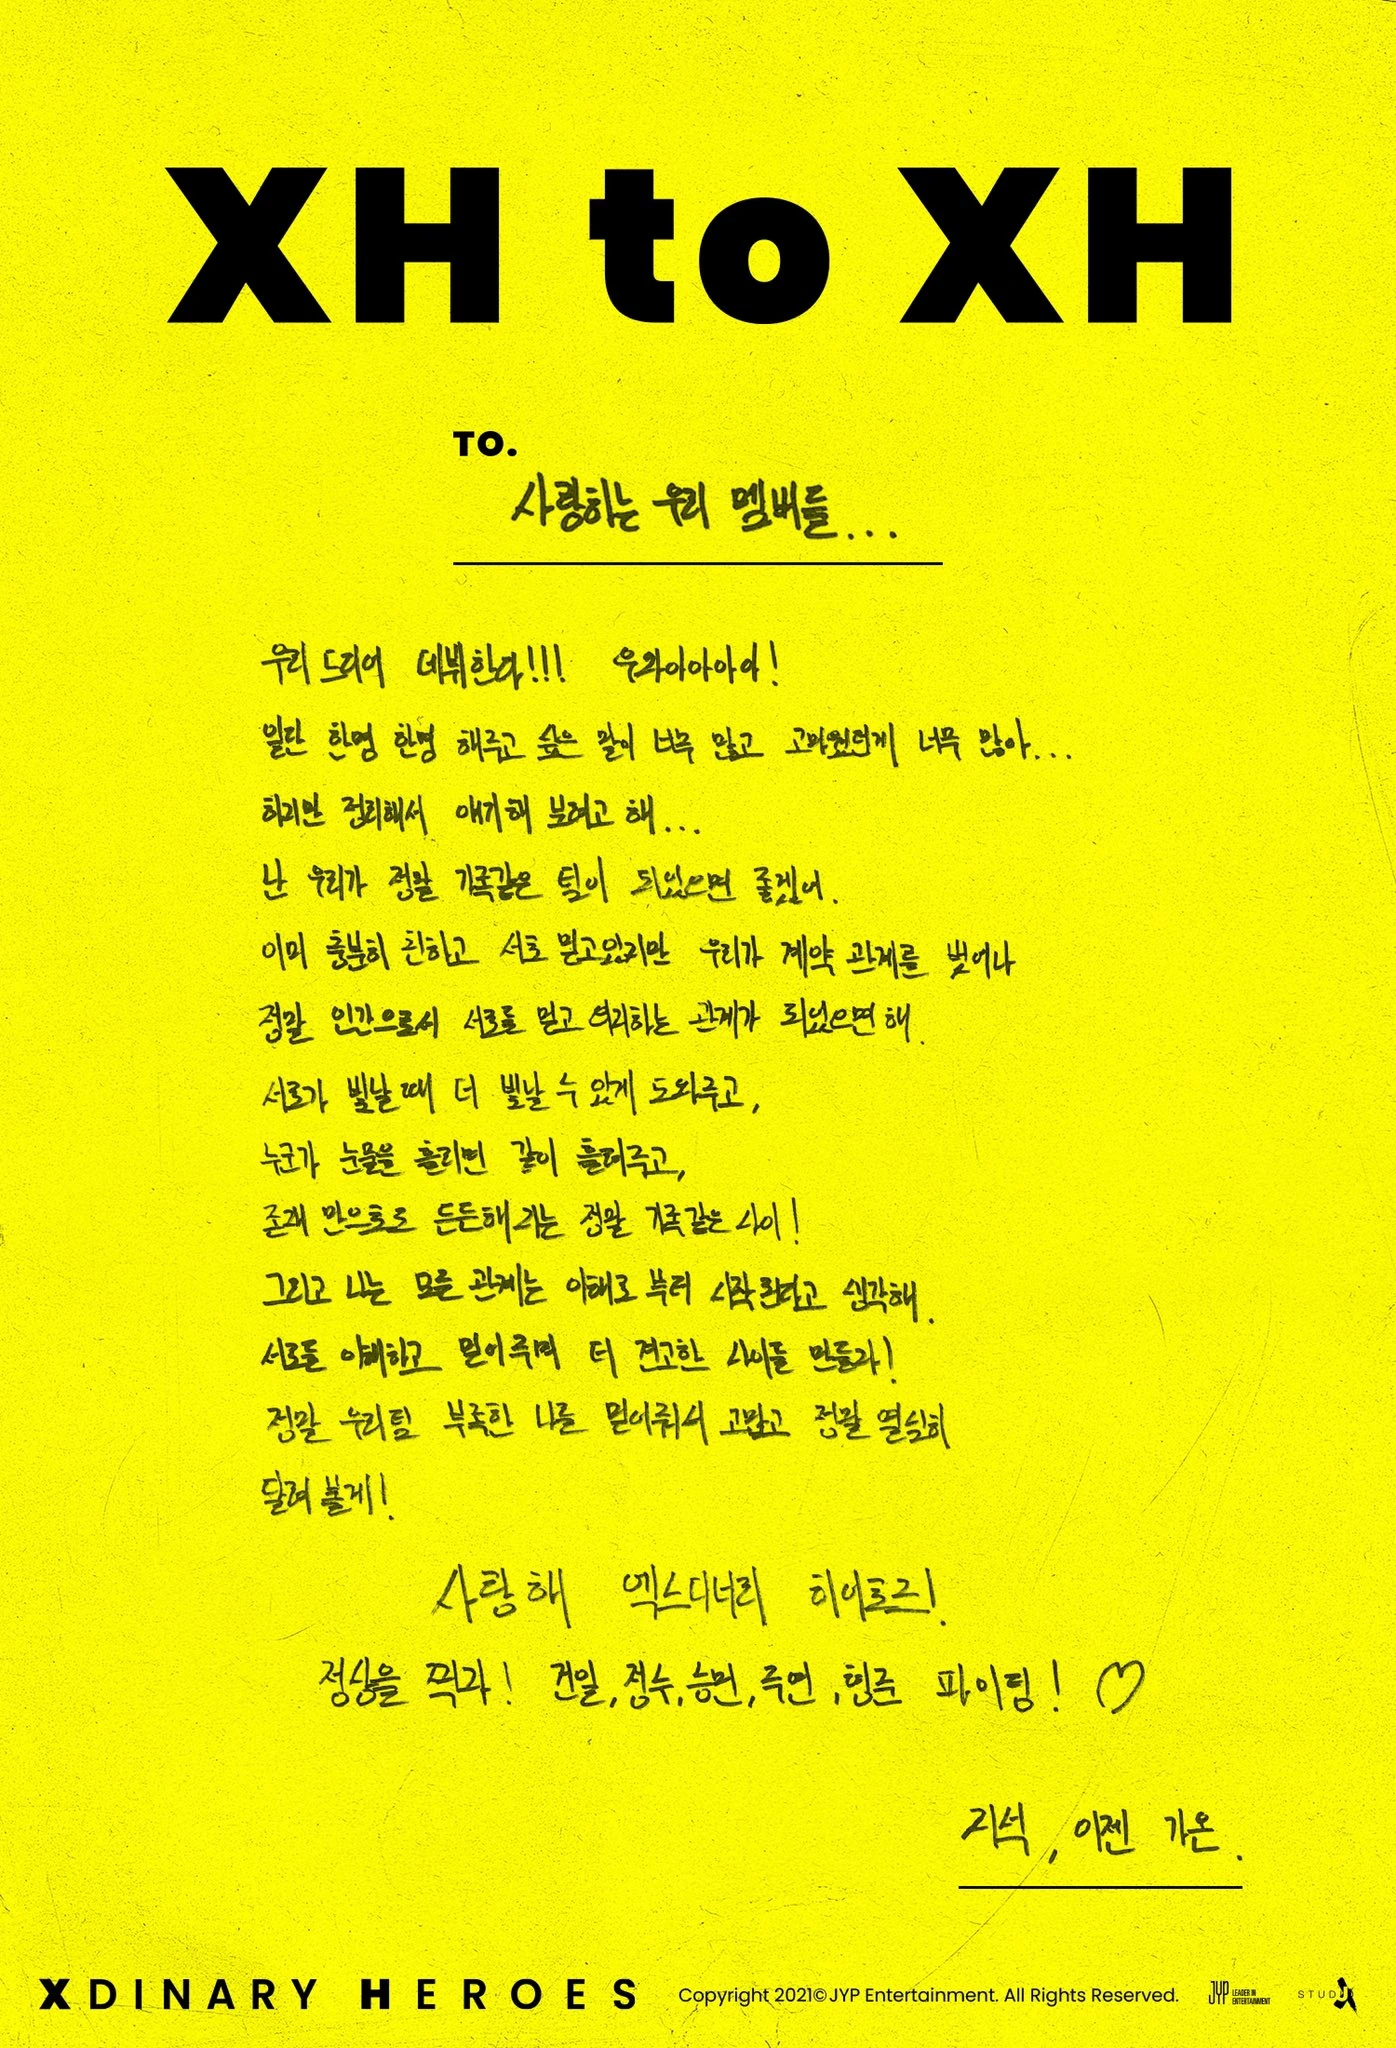 XH to XH
TO.
사랑하는 우리 멤버들...
우리 드디어 데뷔한다!!! 우와아아아아!
일단 한명 한명 해주고 싶은 말이 너무 많고 고마웠던게 너무 많아...
하지만 정리해서 얘기해 보려고 해...
난 우리가 정말 가족같은 팀이 되었으면 좋겠어.
이미 충분히 친하고 서로 믿고있지만 우리가 계약 관계를 벗어나
정말 인간으로서 서로를 믿고 의지하는 관계가 되었으면 해.
서로가 빛날 때 더 빛날 수 있게 도와주고,
누군가 눈물을 흘리면 같이 흘려주고,
존재 만으로도 든든해지는 정말 가족같은 사이!
그리고 나는 모든 관계는 이해로 부터 시작된다고 생각해.
서로를 이해하고 믿어주며 더 견고한 사이를 만들자!
정말 우리팀 부족한 나를 믿어줘서 고맙고 정말 열심히
달려 볼게!
사랑해 엑스디너리 히어로즈!
정상을 찍자! 건일,정수,승민,주연,형준 파이팅! ♡
지석, 이젠 가온.
XDINARY HEROES Copyright 2021©JYP Entertainment. All Rights Reserved. JYP LEADER IN ENTERTAINMENT STUDIO